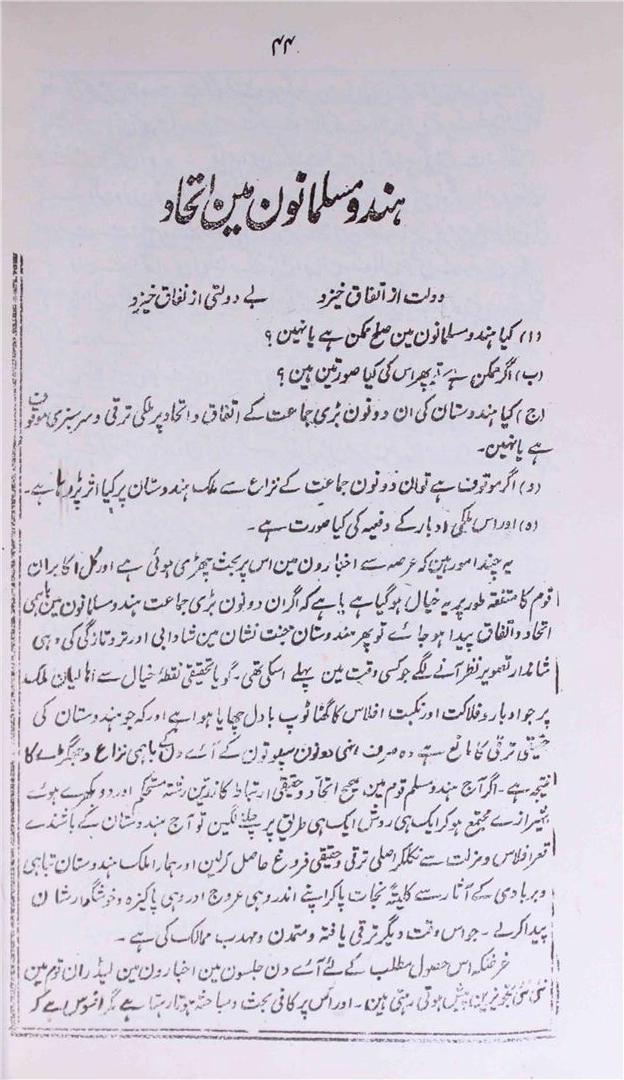 ۴۴
ہندو مسلمانون مین اتحاد
دولت از اتفاق خیزد بے دولتی از نفاق خیزد
(ا) کیا ہندو مسلمانون مین صلح ممکن ہے یا نہین ؟
(ب) اگر ممکن ہے تو پھر اس کی کیا صورتین ہین ؟
(ج) کیا ہندوستان کی ان دونون بڑی جماعت کے اتفاق و اتحاد پر ملکی ترقی و سرسبزی موقوف
ہے یا نہین۔
(د) اگر موقوف ہے تو ان دونون جماعت کے نزاع سے ملک ہندوستان پر کیا اثر پڑ رہا ہے۔
(ہ) اور اس ملکی ادبار کے دفعیہ کی کیا صورت ہے۔
یہ چند امور ہین کہ عرصہ سے اخبارون مین اس پر بحث چھڑی ہوئی ہے اور کل اکابران
قوم کا متفقہ طور پر یہ خیال ہو گیا ہے کہ اگر ان دونون بڑی جماعت ہندو مسلمانون مین باہمی
اتحاد و اتفاق پیدا ہو جائے تو پھر ہندوستان جنت نشان مین شادابی اور تروتازگی کی وہی
شاندار تصویر نظر آنے لگے جو کسی وقت مین پہلے اسکی تھی۔ گویا تحقیقی نقطۂ خیال سے اہالیان ملک
پر جو ادبار و فلاکت اور نکبت افلاس کا گھٹا ٹوپ بادل چھایا ہوا ہے اور کہ جو ہندوستان کی
حقیقی ترقی کا مانع ہے وہ صرف انہی دونون سپوتون کے آے دن کے باہمی نزاع و جھگڑے کا
نتیجہ ہے۔ اگر آج ہندو مسلم قوم مین صحیح اتحاد و حقیقی ارتباط کا زرین رشتہ مستحکم اور دو بکھرے ہوئے
شیرازے مجتمع ہو کر ایک ہی روش ایک ہی طریق پر چلنے لگین تو آج ہندوستان کے باشندے
قعر افلاس و مذلت سے نکلکر اصلی ترقی و حقیقی فروغ حاصل کر لین اور ہمارا ملک ہندوستان تباہی
و بربادی کے آثار سے کلیتہً نجات پاکر اپنے اندر وہی عروج اور وہی پاکیزہ و خوشگوار شان
پیدا کر لے۔ جو اس وقت دیگر ترقی یافتہ و متمدن و مہذب ممالک کی ہے۔
غرضکہ اس حصول مطلب کے لئے آے دن جلسون مین اخبارون مین لیڈران قوم مین
نئی نئی تجویزین پیش ہوتی رہتی ہین۔ اور اس پر کافی بحث و مباحثہ ہوتا رہتا ہے مگر افسوس ہے کہ